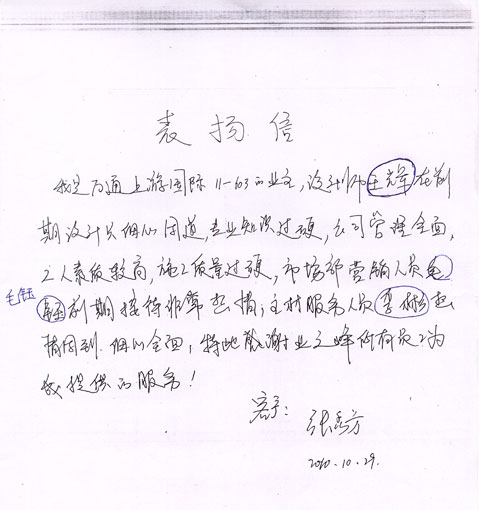 表扬信
我是万通上游国际11-603的业主,设计师王光辉在前
期设计久细心周道,专业知识过硬,公司管理全面,
工人素质较高,施工质量过硬,市场部营销人员毛
毛钰
钰前期接待非常热情;主材服务人员李彬热
情周到.细心全面,特此感谢业之峰所有员工为
我提供的服务!
客户:
2010.10.29.